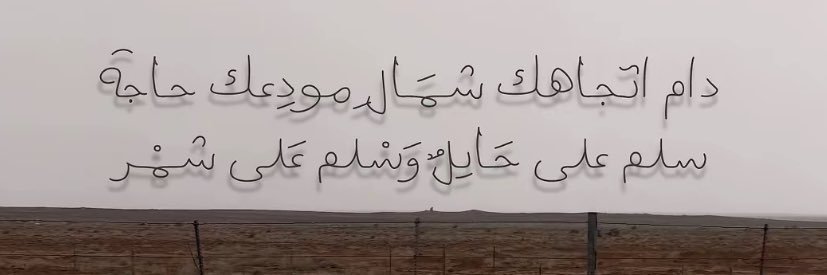 دام اتجاهك شمَال مودِعك حاجة
سلم على حَايلٌ وَسْلم عَلى شمْر